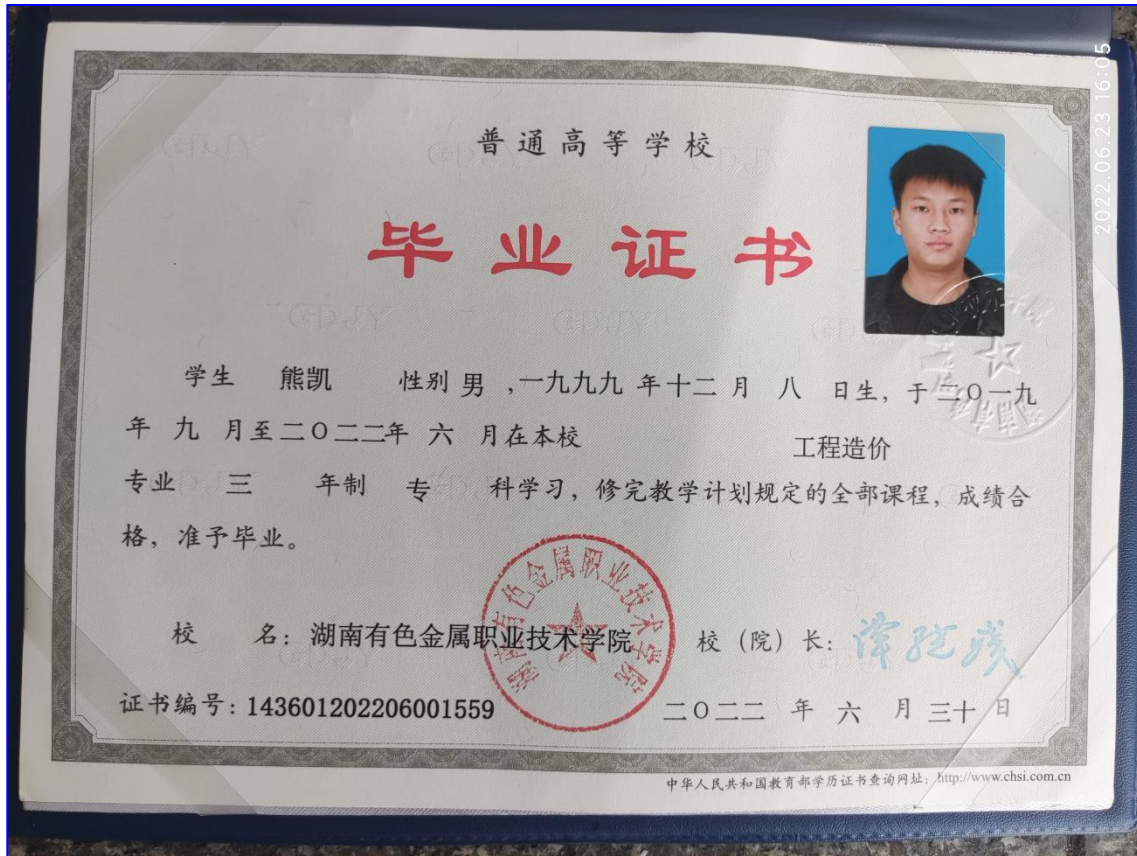 2022.06.23 16:05
普通高等学校
毕业证书
学生 熊凯 性别 男 ,一九九九 年十二 月 八 日生, 于二〇一九
年 九 月至二〇二二年 六 月在本校 工程造价
专业 三 年制 专 科学习, 修完教学计划规定的全部课程, 成绩合
格, 准予毕业。
湖南有色金属职业技术学院
校 名: 湖南有色金属职业技术学院 校 (院) 长:
证书编号: 143601202206001559 二〇二二 年 六 月 三十 日
中华人民共和国教育部学历证书查询网址: http://www.chsi.com.cn